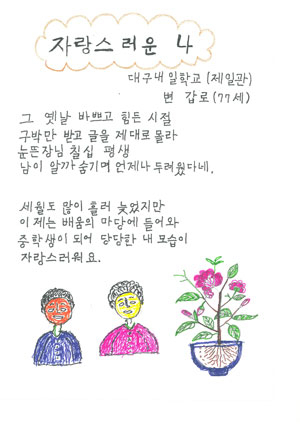 자랑스러운 나
대구내일학교 (제일관)
변 갑로 (77세)
그 옛날 바쁘고 힘든 시절
구박만 받고 글을 제대로 몰라
눈뜬장님 칠십 평생
남이 알까 숨기며 언제나 두려웠다네.
세월도 많이 흘러 늦었지만
이제는 배움의 마당에 들어와
중학생이 되어 당당한 내 모습이
자랑스러워요.